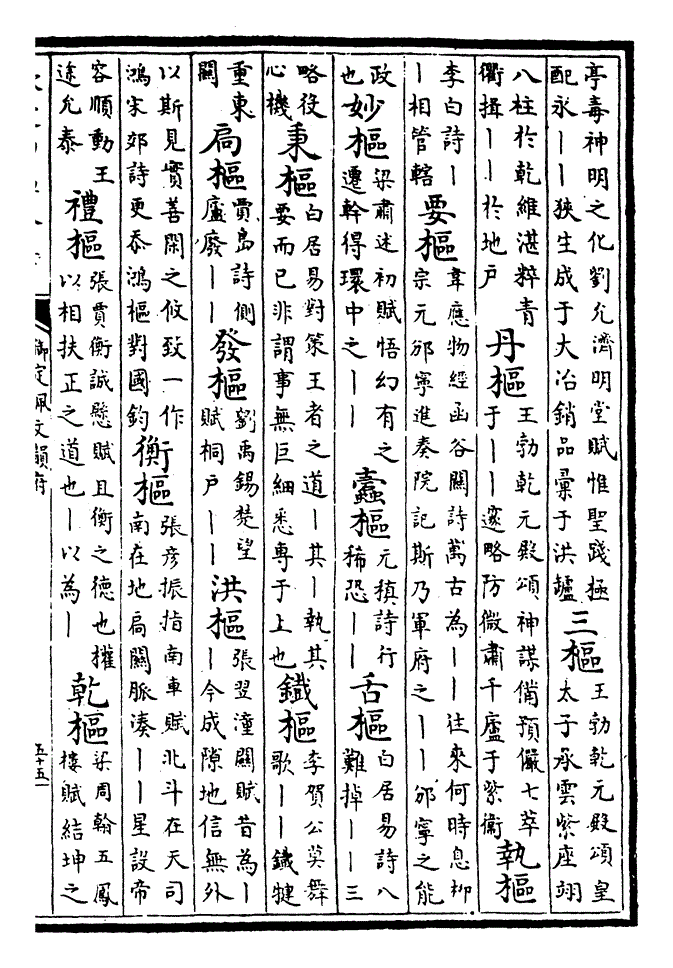 亭毒神明之化劉允濟明堂賦惟聖踐極
配永丨丨狹生成于大冶銷品彙于洪鑪
三樞
王勃乾元殿頌皇
太子承雲紫座翊
八柱於乾維湛粹青
衢揖丨丨於地户
丹樞
王勃乾元殿頌神謀備預儼七萃
于丨丨邃略防微肅千廬于紫衞
執樞
李白詩丨
丨相管轄
要樞
韋應物經函谷關詩萬古為丨丨往來何時息柳
宗元邠寧進奏院記斯乃軍府之丨丨邠寧之能
政
也
妙樞
梁肅述初賦悟幻有之
遷幹得環中之丨丨
蠹樞
元稹詩行
稀恐丨丨
舌樞
白居易詩八
難掉丨丨三
略役
心機
秉樞
白居易對策王者之道丨其丨執其
要而已非謂事無巨細悉專于上也
鐵樞
李賀公莫舞
歌丨丨鐵楗
重東
關
扃樞
賈島詩側
廬廢丨丨
發樞
劉禹錫楚望
賦桐户丨丨
洪樞
張翌潼關賦昔為丨
丨今成隙地信無外
以斯見實善閑之攸致一作
鴻宋郊詩更忝鴻樞對國鈞
衡樞
張彦振指南車賦北斗在天司
南在地扃關脈湊丨丨星設帝
容順動王
途允泰
禮樞
張賈衡誠懸賦且衡之德也權
以相扶正之道也丨以為丨
乾樞
梁周翰五鳳
樓賦結坤之
御定佩文韻府
五十五